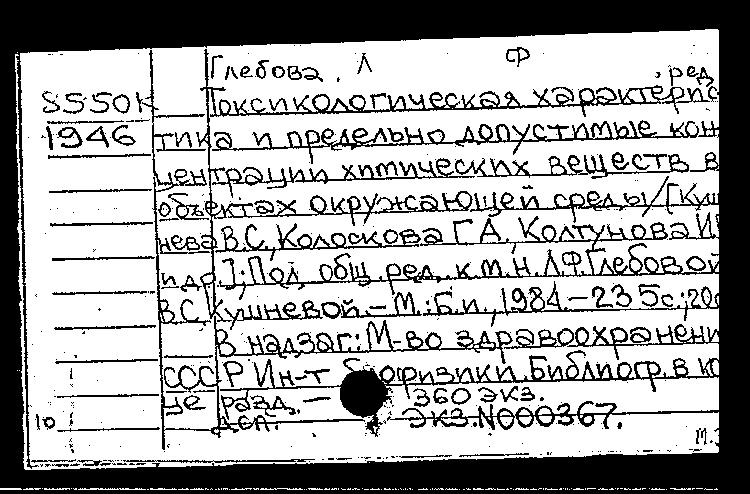 Глебова. Л Ф
, ред
S550К Токсикологическая характерис
1946 тика и предельно допустимые кон
центрации химических веществ в
объектах окружающей среды/[Куш
нева В.С, Колоскова Г.А, Колтунова И
и др.]; Под общ. ред. к.м.н. Л.Ф.Глебовой
В.С. Кушневой. – М.: Б.и., 1984. – 235с.; 20с
В надзаг: М-во здравоохранени
СССР Ин-т биофизики. Библиогр. в ко
це разд. – 360 экз.
10 Деп. экз. N000367.
М.